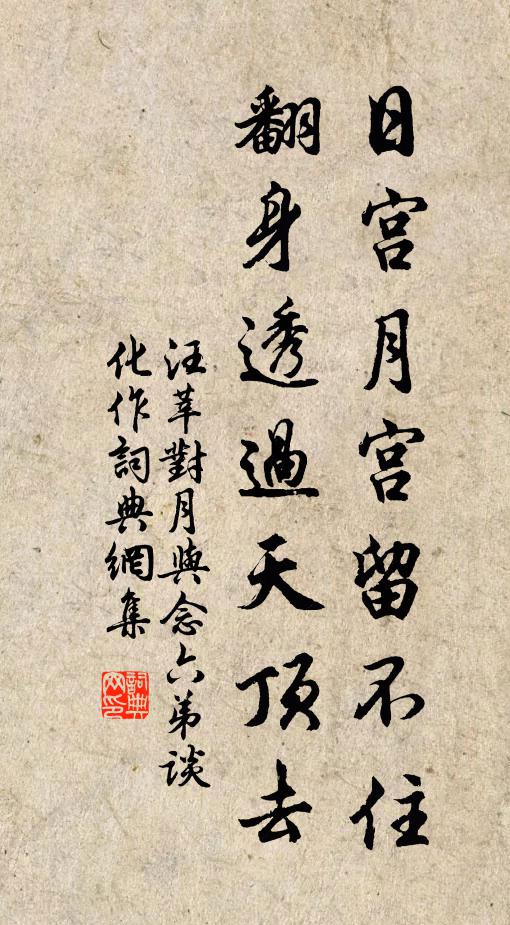 日宫月宫留不住
翻身透過天頂去
汪莘對月與念六弟談
化作詞典網集
詞典網印